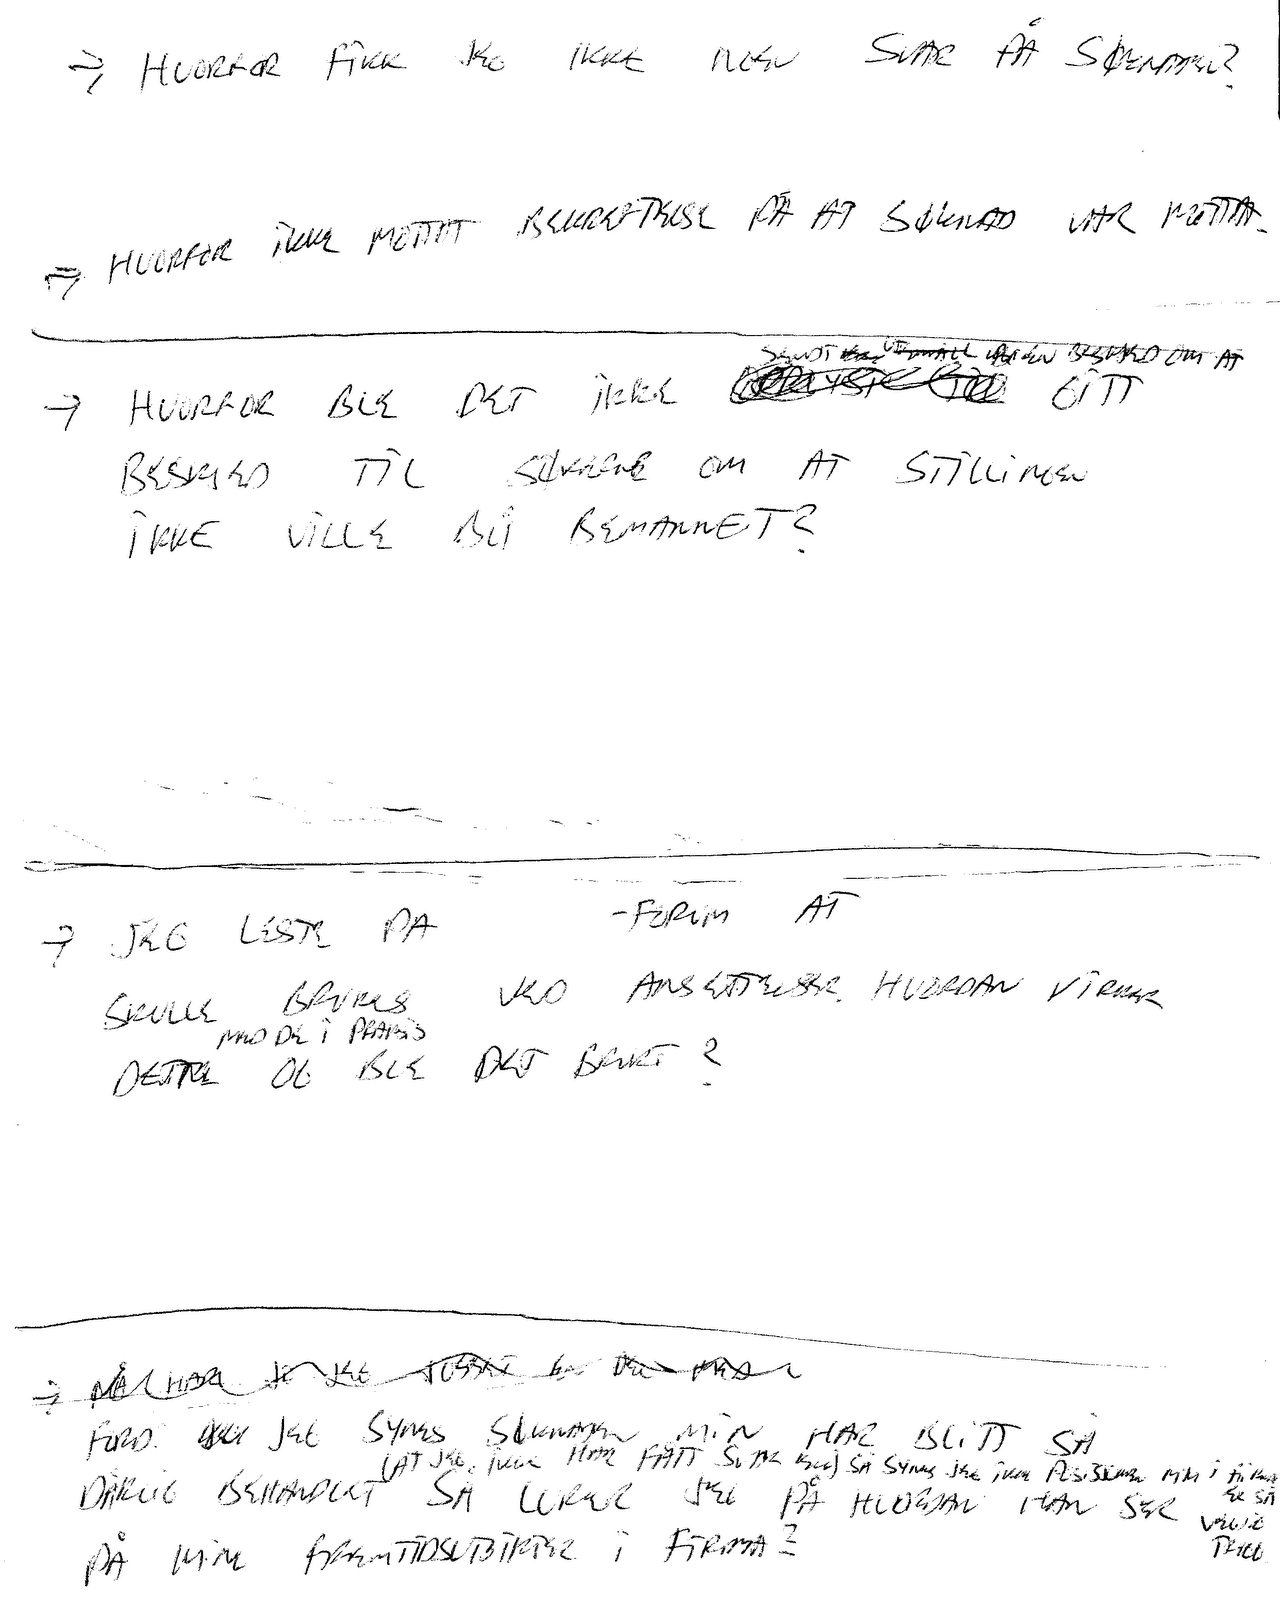 → HVORFOR FIKK JEG IKKE NOEN SVAR PÅ SØKNADEN?
⇒ HVORFOR IKKE MOTTAT BEKREFTELSE PÅ AT SØKNAD VAR MOTTATT.
SENDT BESKJED OM AT
→ HVORFOR BLE DET IKKE GITT
BESKJED TIL SØKERNE OM AT STILLINGEN
IKKE VILLE BLI BEMANNET?
→ JEG LESTE PÅ -FORUM AT
SKULLE BRUKES VED ANSETTELSER. HVORDAN VIRKER
DETTE OG BLE DET BRUKT?
I PRAKSIS
FORDI JEG SYNES SØKNADEN MIN HAR BLITT SÅ
(AT JEG IKKE HAR FÅTT SVAR) SÅ SYNES JEG IKKE POSISJONEN MIN I FIRMA
ER SÅ
DÅRLIG BEHANDLET SÅ LURER JEG PÅ HVORDAN MAN SER
VELDIG
TRYGG
PÅ MINE FREMTIDSUTSIKTER I FIRMA?